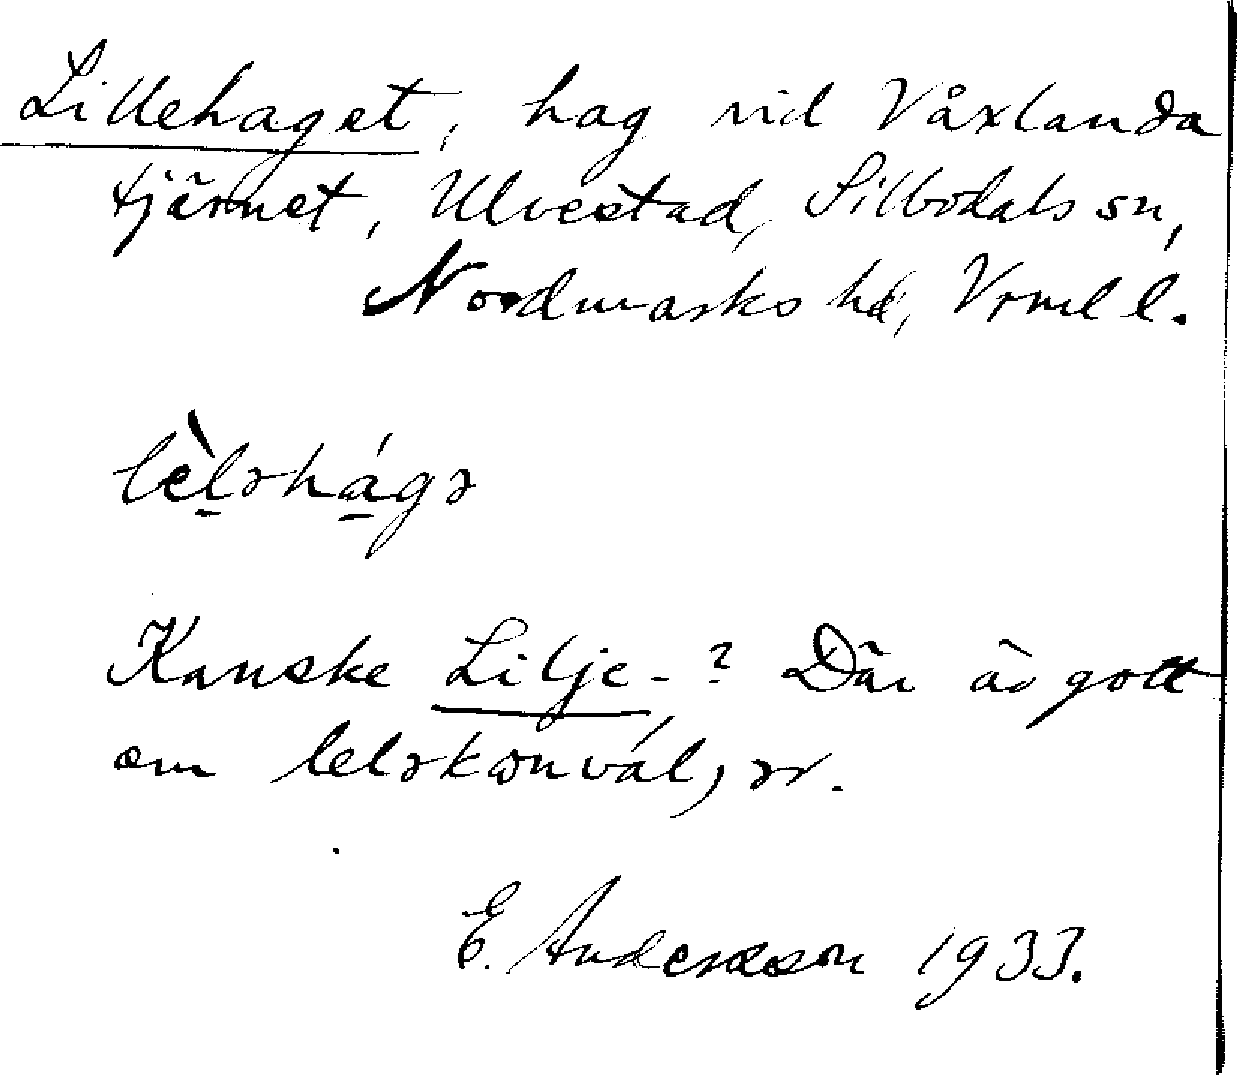 Lillehaget, hag vid Våxlanda
tjärnet, Ulvestad, Silbodals sn,
Nordmarks hd, Vrml l.
lèləhágə
Kanske Lilje-? Där är gott
om leləkonváljər.
E. Andersson 1933.